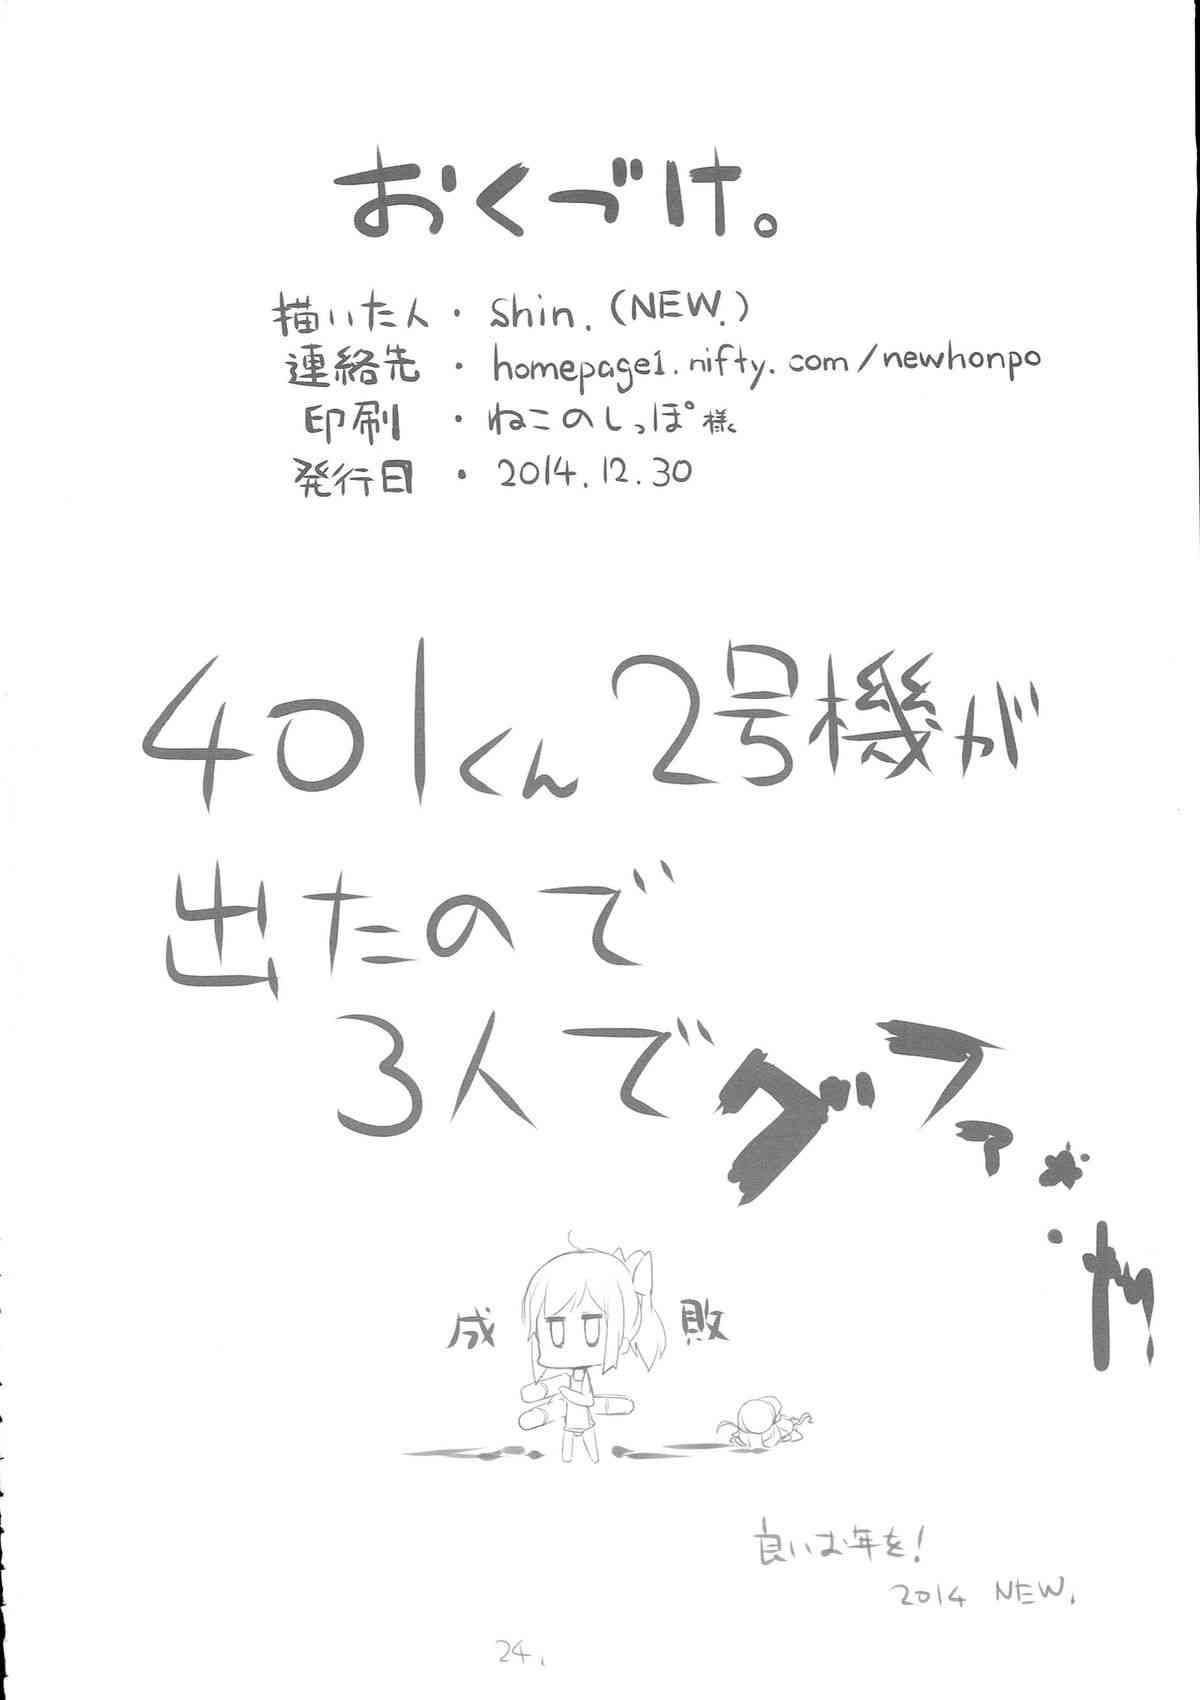 おくづけ。
描いた人・shin.(NEW.)
連絡先・homepage1.nifty.com/newhonpo
印刷・ねこのしっぽ様
発行日・2014.12.30
401くん2号機が
出たので
3人でグファ
成敗
良いお年を!
2014 NEW.
24.